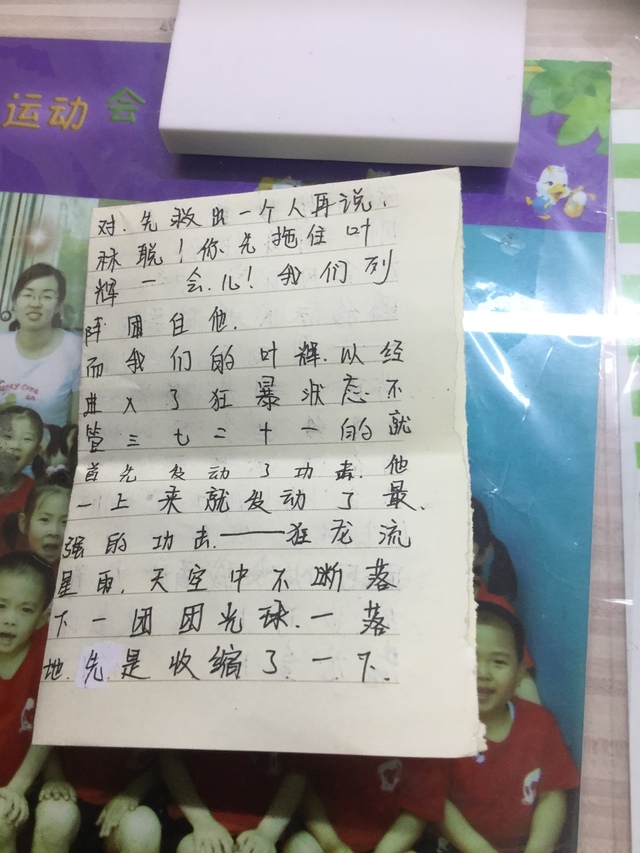 运动会
对.先救出一个人再说,
林聪!你先拖住叶
辉一会儿!我们列
阵困住他.
而我们的叶辉.以经
进入了狂暴状态不
管三七二十一的就
首先发动了功击.他
一上来就发动了最
强的功击.——狂龙流
星雨.天空中不断落
下一团团光球.一落
地.先是收缩了.一下.